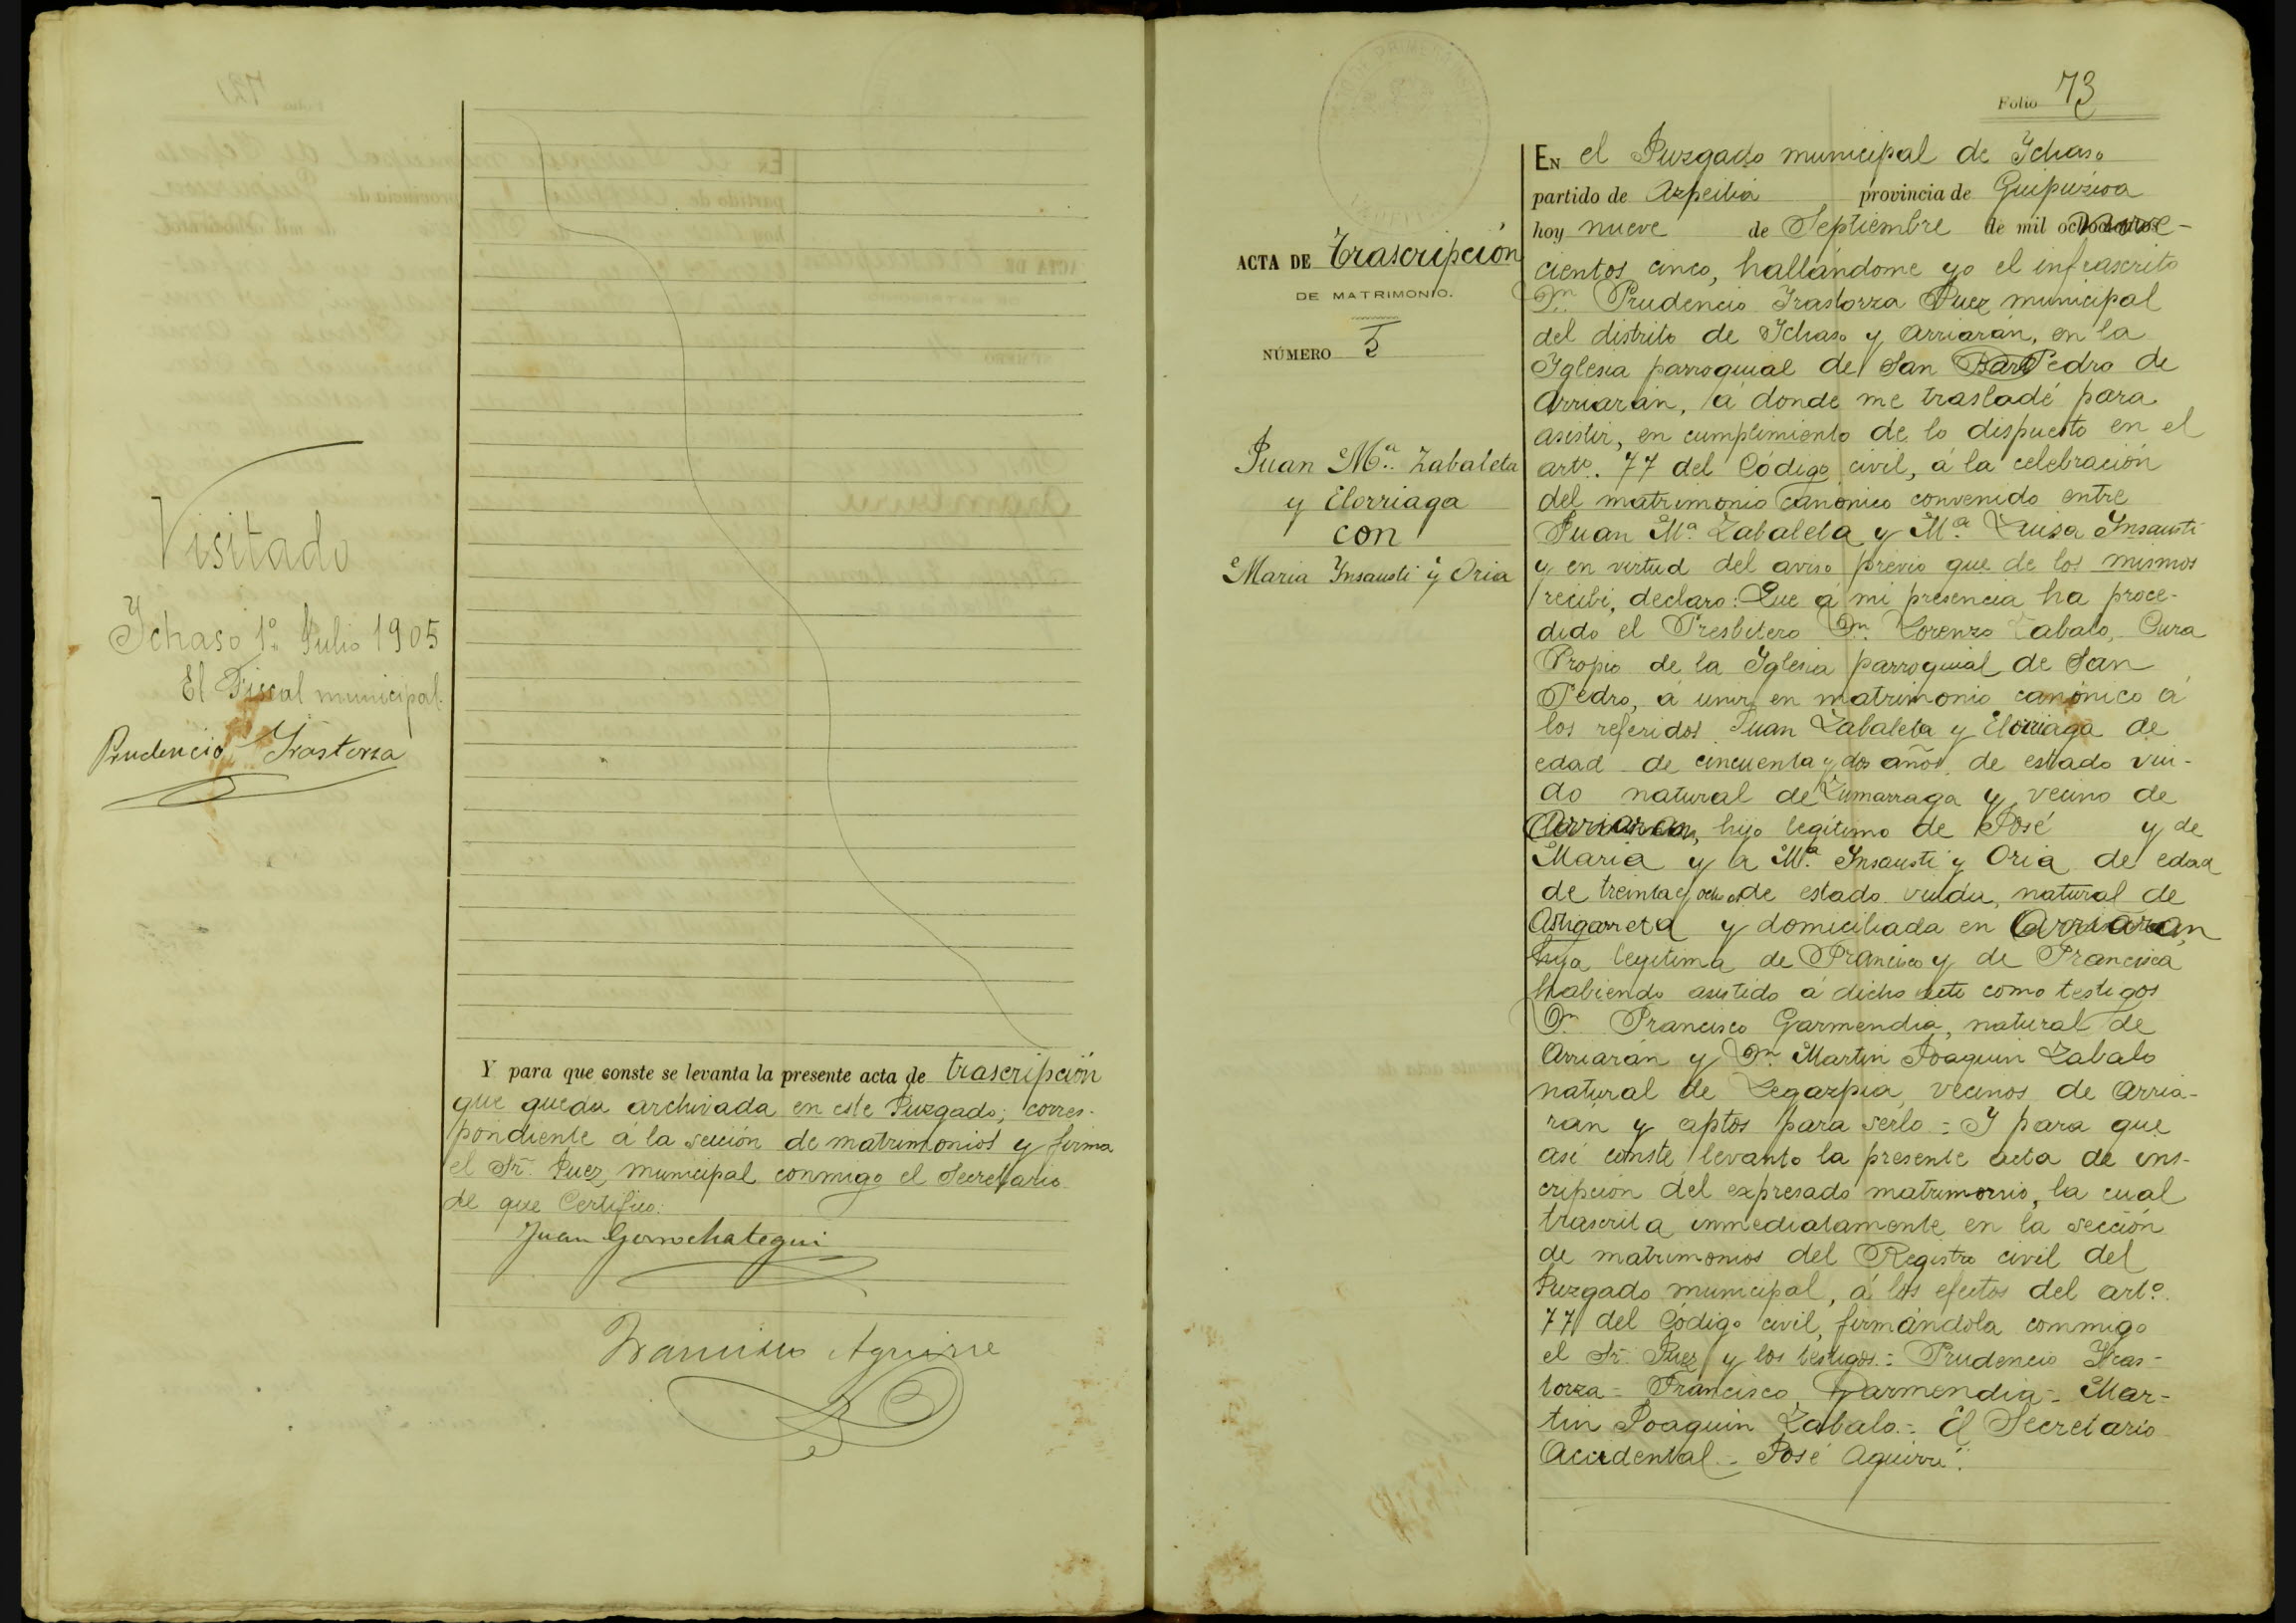 Visitado
Ichaso 1º Julio 1905
El Fiscal municipal
Prudencio Irastorza
Y para que conste se levanta la presente acta de trascripción
que queda archivada en este Juzgado; corres-
pondiente á la sección de matrimonios y firma
el Sr. Juez municipal conmigo el Secretario
de que Certifico:
Juan Gorrochategui
Francisco Aguirre
Folio 73
ACTA DE trascripción
DE MATRIMONIO.
NÚMERO 5
Juan Mª. Zabaleta
y Elorriaga
con
Maria Insausti y Oria
EN el Juzgado municipal de Ichaso
partido de Azpeitia provincia de Guipúzcoa
hoy nueve de Septiembre de mil nove-
cientos cinco, hallándome yo el infrascrito
Dn. Prudencio Irastorza Juez municipal
del distrito de Ichaso y Arriarán, en la
Iglesia parroquial de San Pedro de
Arriarán, á donde me trasladé para
asistir, en cumplimiento de lo dispuesto en el
artº. 77 del Código civil, á la celebración
del matrimonio canónico convenido entre
Juan Mª Zabaleta y Mª Luisa Insausti
y en virtud del aviso previo que de los mismos
recibi, declaro: Que á mi presencia ha proce-
dido el Presbitero Dn. Lorenzo Zabalo, Cura
Propio de la Iglesia parroquial de San
Pedro, á unir en matrimonio canónico á
los referidos Juan Zabaleta y Elorriaga de
edad de cincuenta y dos años de estado viu-
do natural de Zumarraga y vecino de
Arriaran, hijo legítimo de José y de
Maria y a Mª Insausti y Oria de edad
de treinta y ocho de estado viuda, natural de
Astigarreta y domiciliada en Arriaran,
hija legitima de Francisco y de Francisca
habiendo asistido á dicho acto como testigos
Dn. Francisco Garmendia, natural de
Arriarán y Dn. Martin Joaquin Zabalo
natural de Legazpia, vecinos de Arria-
rán y aptos para serlo = Y para que
asi conste levanto la presente acta de ins-
cripción del expresado matrimonio, la cual
trascrita inmediatamente en la sección
de matrimonios del Registro civil del
Juzgado municipal, á los efectos del artº
77 del Código civil, firmándola conmigo
el Sr. Juez y los testigos = Prudencio Iras-
torza = Francisco Garmendia = Mar-
tin Joaquin Zabalo = El Secretario
Accidental = José Aguirre.